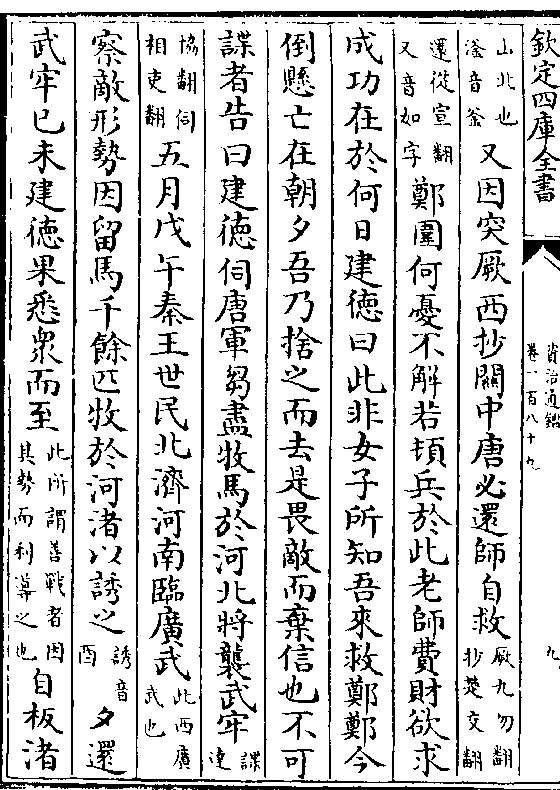 欽定四庫全書
資治通鑑
卷一百八十九
九
山北也
滏音釜
又因突厥西抄關中唐必還師自救
厥九勿翻
抄楚交翻
還從宣翻
又音如字
鄭圍何憂不解若頓兵於此老師費財欲求
成功在於何日建德曰此非女子所知吾來救鄭鄭今
倒懸亡在朝夕吾乃捨之而去是畏敵而棄信也不可
諜者告曰建德伺唐軍芻盡牧馬於河北將襲武牢
諜
達
協翻伺
相吏翻
五月戊午秦王世民北濟河南臨廣武
此西廣
武也
察敵形勢因留馬千餘匹牧於河渚以誘之
誘音
酉
夕還
武牢己未建德果悉衆而至
此所謂善戰者因
其勢而利導之也
自板渚